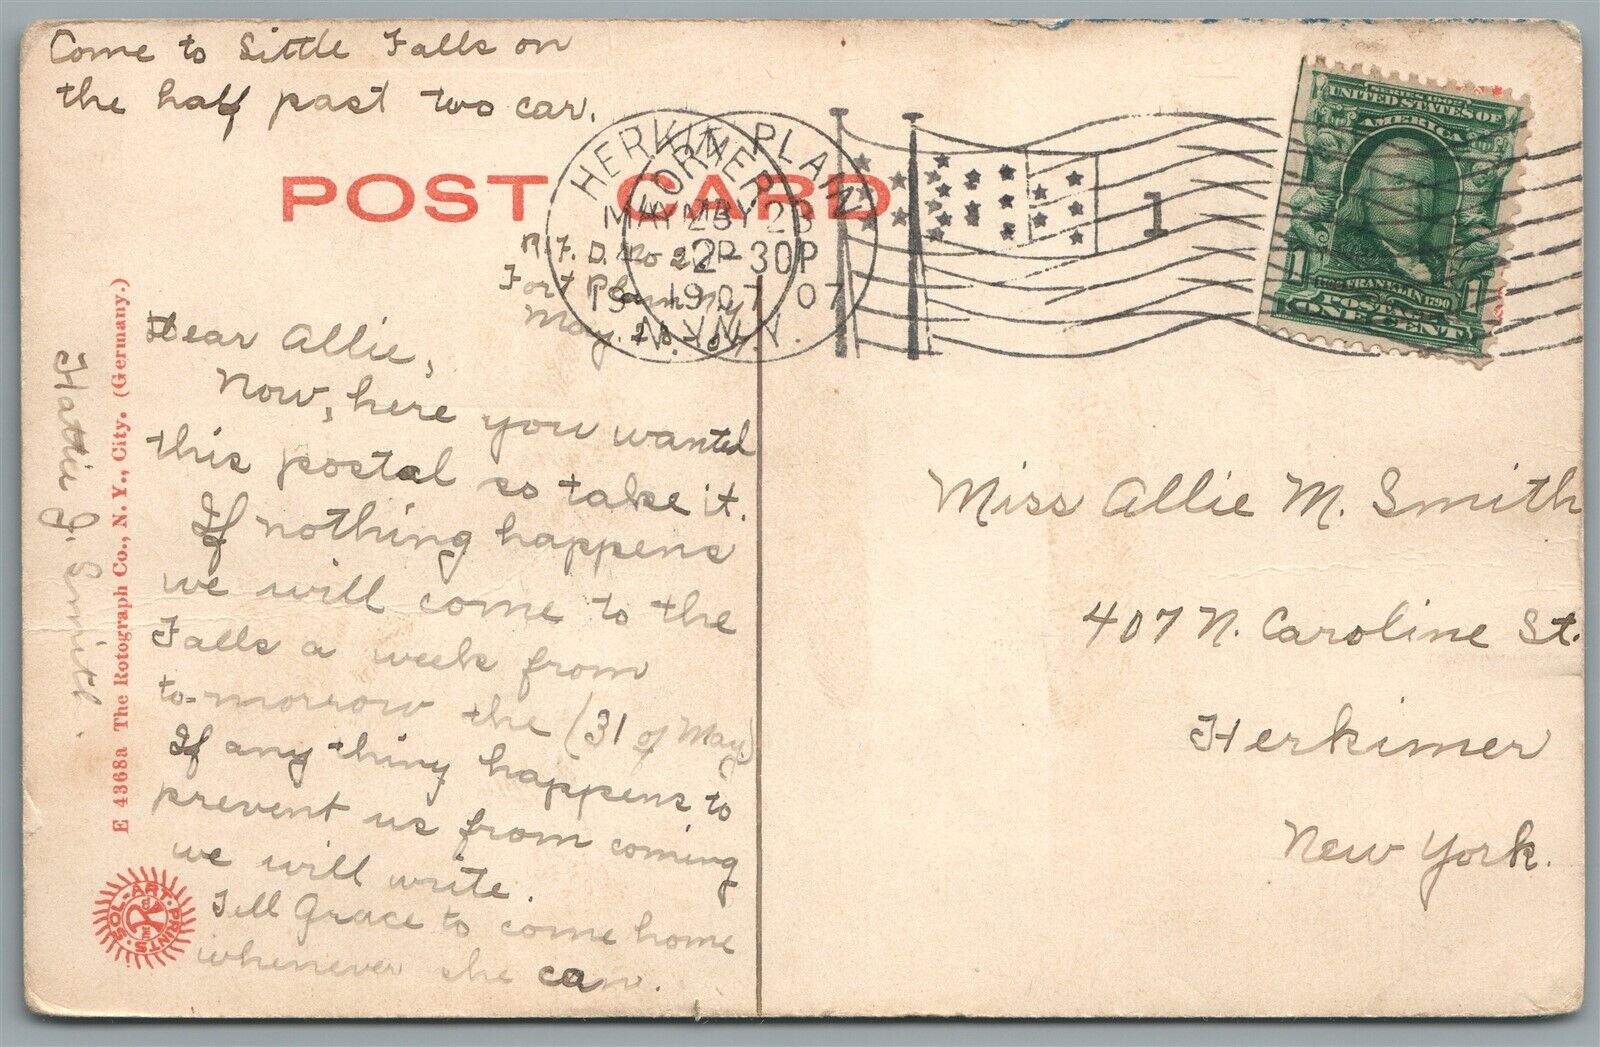 Come to Little Falls on
the half past two car.
POST CARD
HERKIMER
FORT PLAIN
MAY 23
MAY 23
2-30P
1907
N.Y.
N.Y.
1
SERIES 1902
UNITED STATES OF
AMERICA
FRANKLIN 1790
POSTAGE
1 ONE CENT 1
R.F.D. No 2
Fort Plain, N.Y.
May.
Dear Allie,
Now, here you wanted
this postal so take it.
If nothing happens
we will come to the
Falls a week from
to-morrow the (31 of May)
If anything happens to
prevent us from coming
we will write.
Tell Grace to come home
whenever she can.
Hattie J. Smith.
E 4368a The Rotograph Co., N. Y., City. (Germany.)
SOL-ART PRINTS
Miss Allie M. Smith
407 N. Caroline St.
Herkimer
New York.